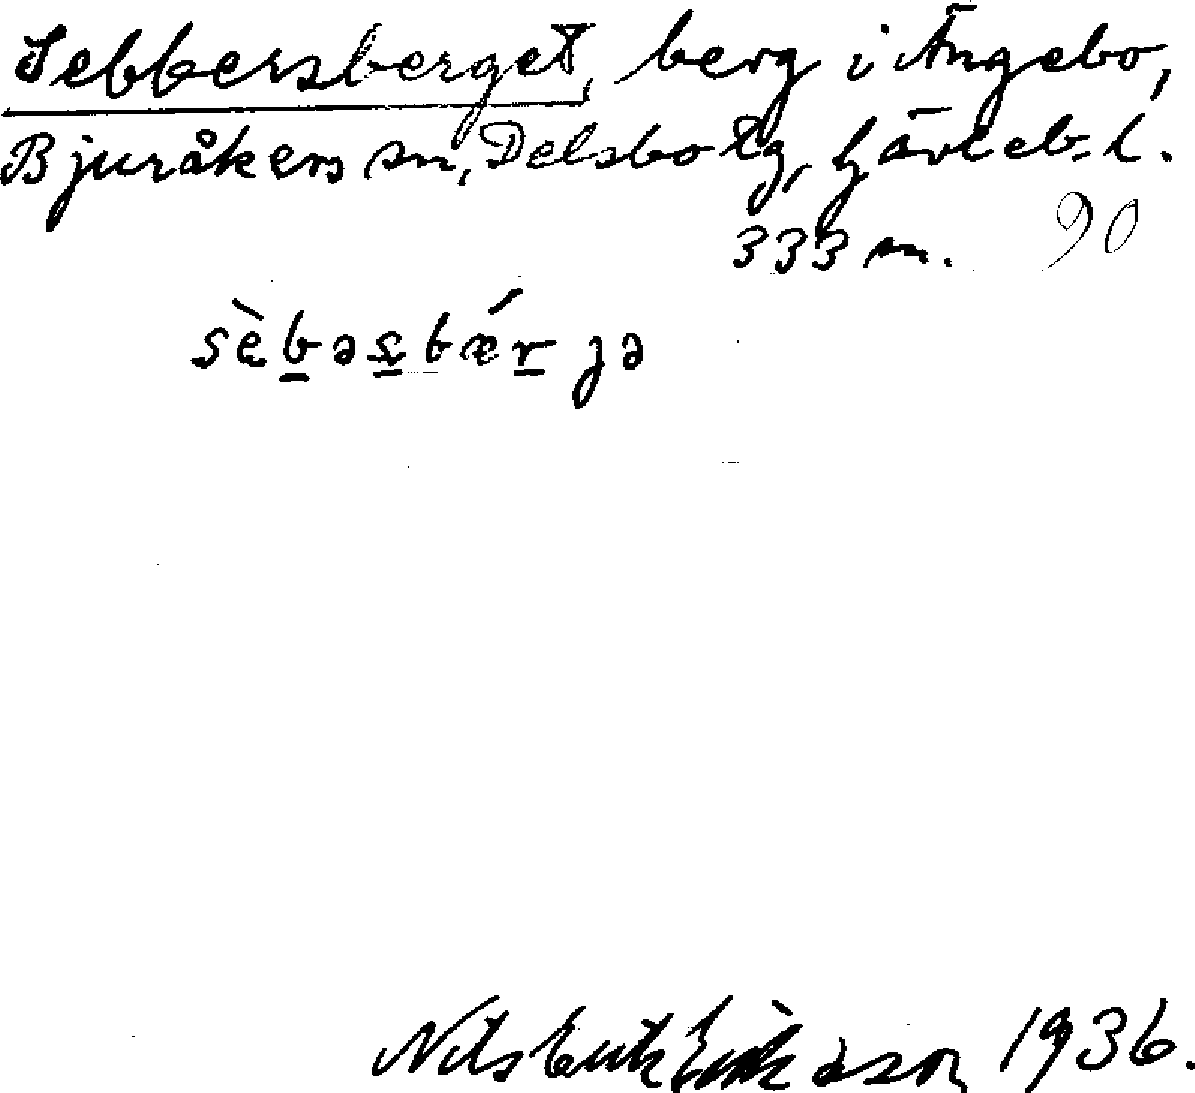 Sebbersberget, berg i Ängebo,
Bjuråkers sn, Delsbo tg, Gävleb. l.
333 m. 90
sèb̲əs̲bǽr̲ɟə
Nils Erik Eriksson 1936.